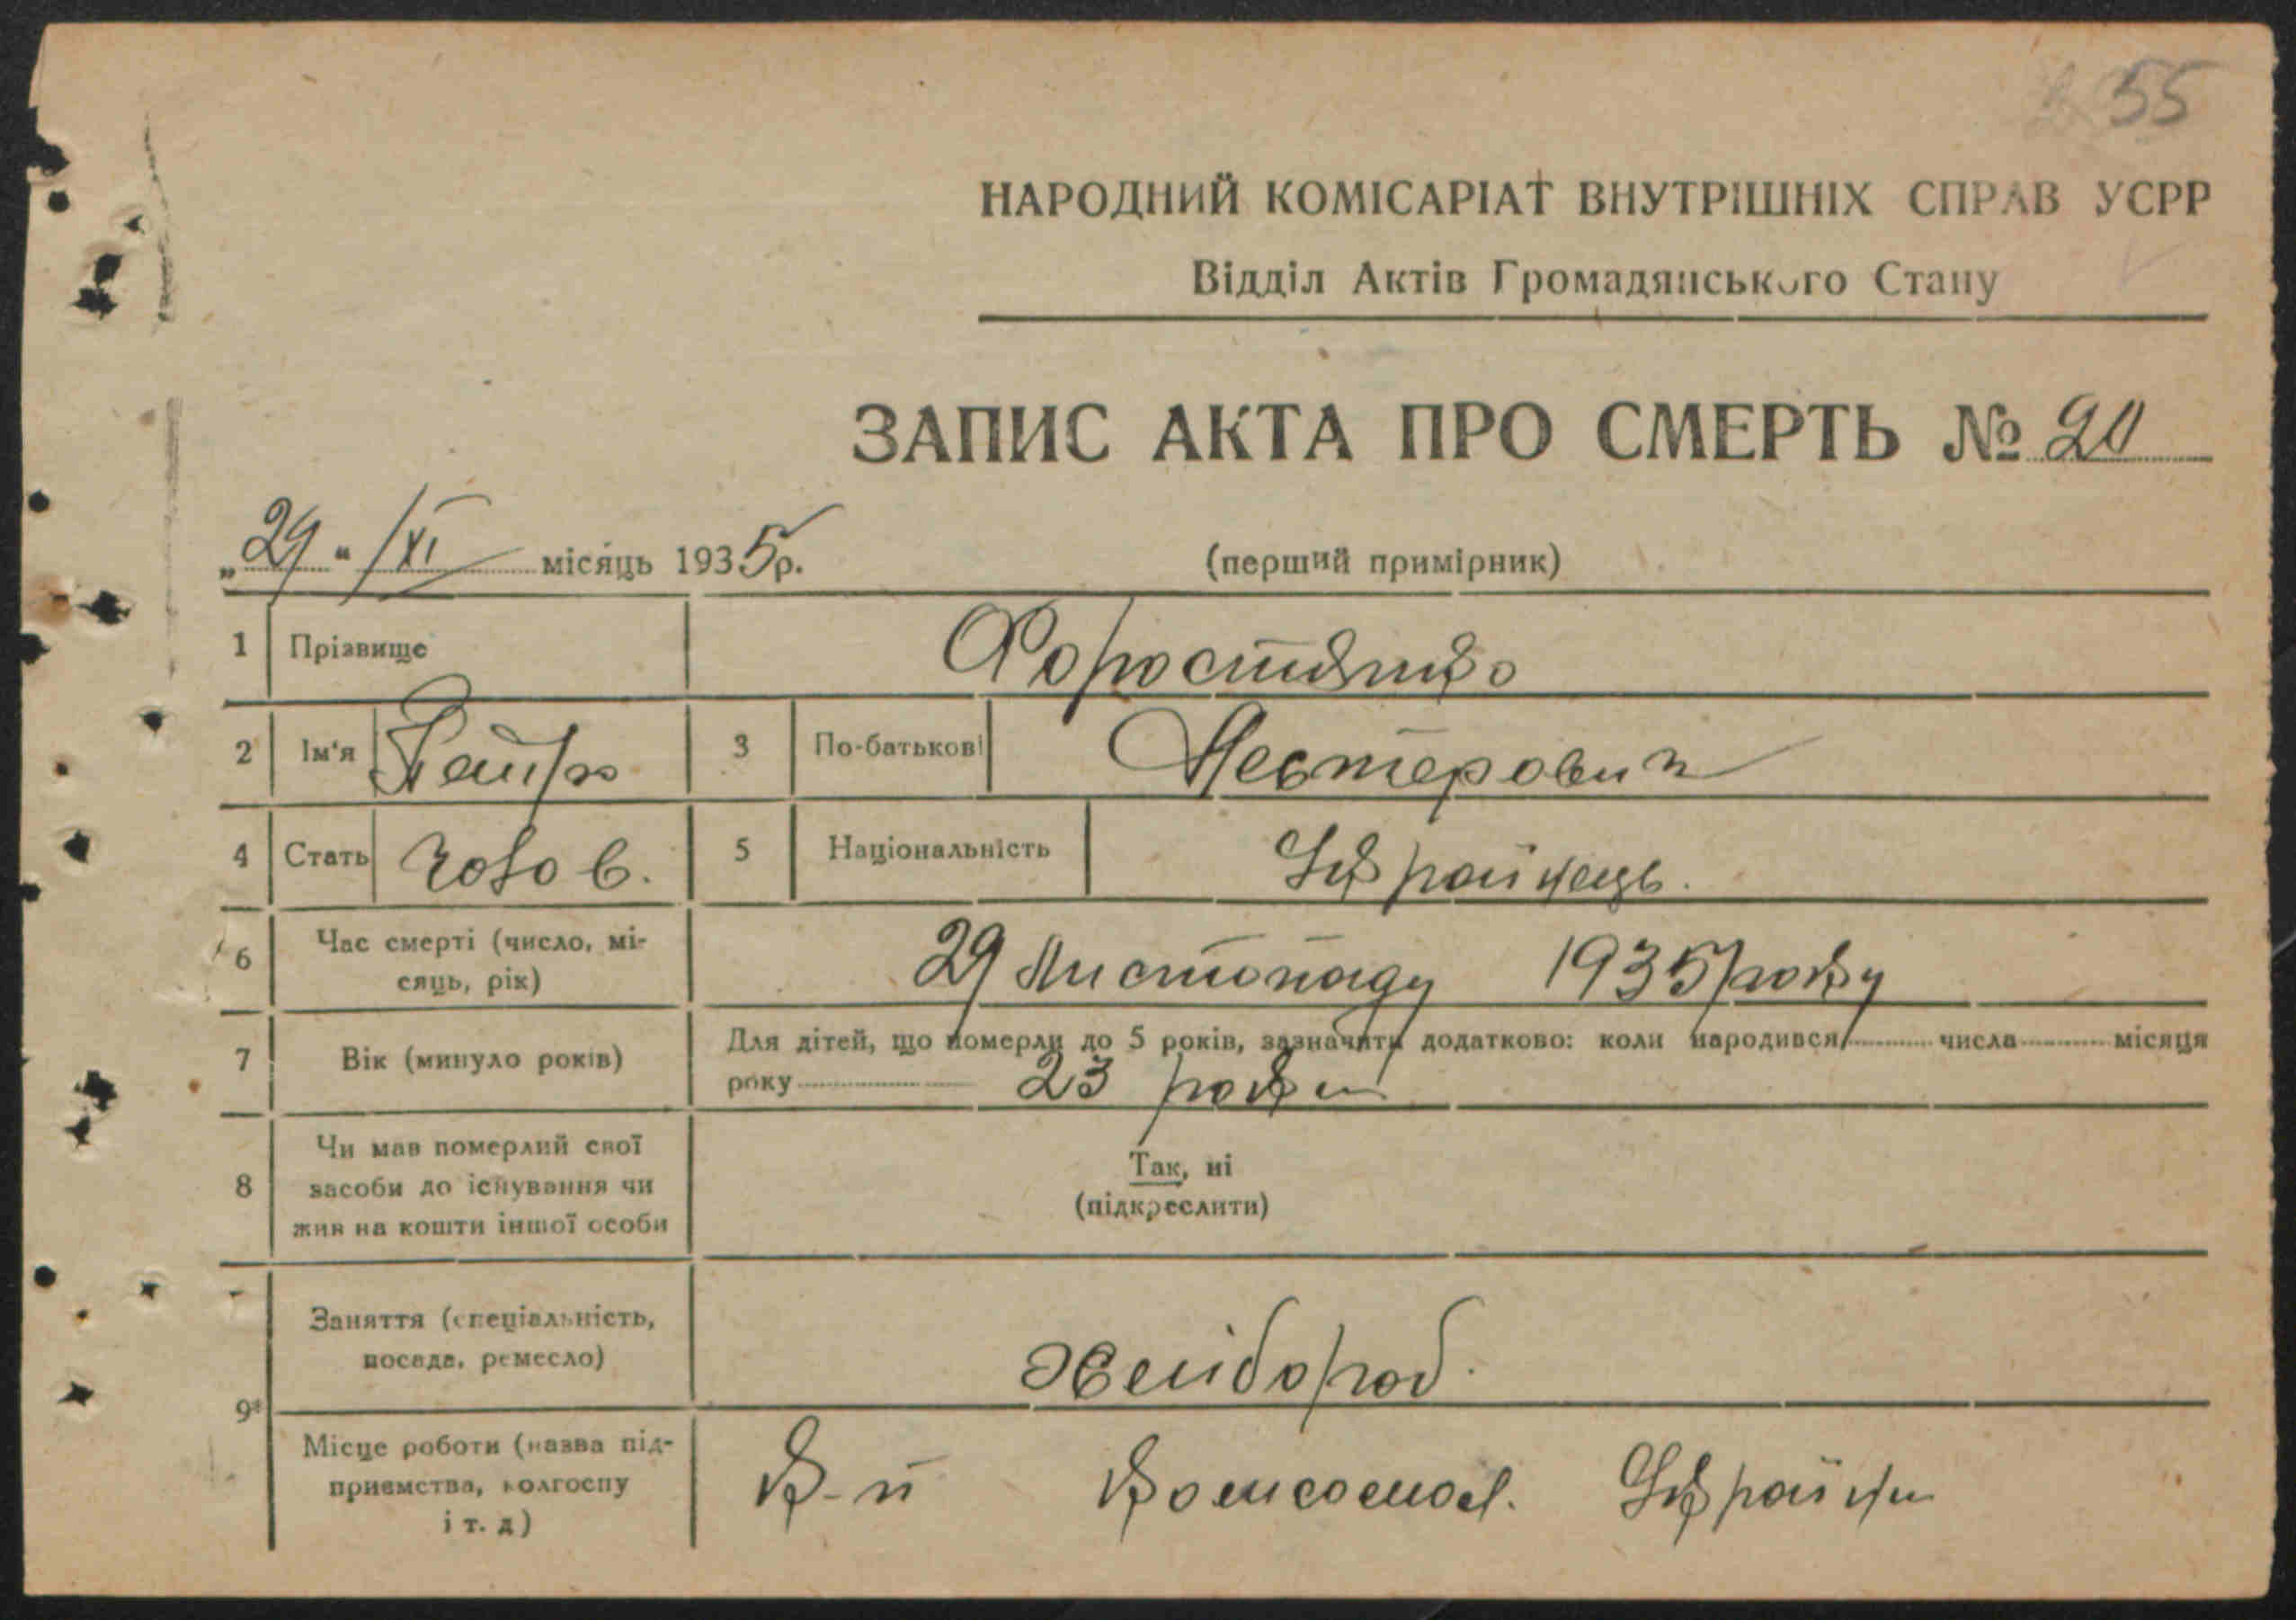 55
НАРОДНИЙ КОМІСАРІАТ ВНУТРІШНІХ СПРАВ УСРР
Відділ Актів Громадянського Стану
ЗАПИС АКТА ПРО СМЕРТЬ № 20
„29“ /XI місяць 1935р. (перший примірник)
1 Прізвище Форостянко
2 Ім‘я Петро 3 По-батькові Несте́рович
4 Стать Чолов. 5 Національність Українець.
6 Час смерті (число, мі-
сяць, рік) 29 Листопаду 1935 року
7 Вік (минуло років) Для дітей, що померли до 5 років, зазначити додатково: коли народився числа місяця
року 23 роки
8 Чи мав померлий свої
засоби до існування чи
жив на кошти іншої особи
Так, ні
(підкреслити)
9* Заняття (спеціальність,
посада, ремесло) Хлібороб.
Місце роботи (назва під-
приємства, колгоспу
і т. д) К-п Комсомол. України